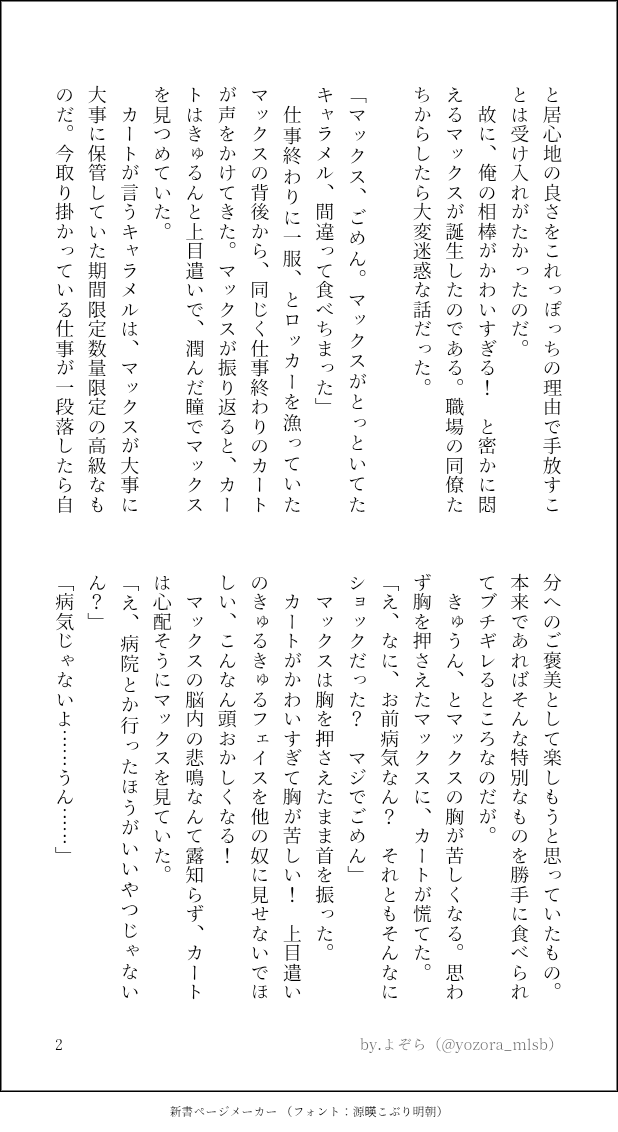 と居心地の良さをこれっぽっちの理由で手放すこ
とは受け入れがたかったのだ。
　故に、俺の相棒がかわいすぎる！　と密かに悶
えるマックスが誕生したのである。職場の同僚た
ちからしたら大変迷惑な話だった。
「マックス、ごめん。マックスがとっといてた
キャラメル、間違って食べちまった」
　仕事終わりに一服、とロッカーを漁っていた
マックスの背後から、同じく仕事終わりのカート
が声をかけてきた。マックスが振り返ると、カー
トはきゅるんと上目遣いで、潤んだ瞳でマックス
を見つめていた。
　カートが言うキャラメルは、マックスが大事に
大事に保管していた期間限定数量限定の高級なも
のだ。今取り掛かっている仕事が一段落したら自
分へのご褒美として楽しもうと思っていたもの。
本来であればそんな特別なものを勝手に食べられ
てブチギレるところなのだが。
　きゅうん、とマックスの胸が苦しくなる。思わ
ず胸を押さえたマックスに、カートが慌てた。
「え、なに、お前病気なん？　それともそんなに
ショックだった？　マジでごめん」
　マックスは胸を押さえたまま首を振った。
　カートがかわいすぎて胸が苦しい！　上目遣い
のきゅるきゅるフェイスを他の奴に見せないでほ
しい、こんなん頭おかしくなる！
　マックスの脳内の悲鳴なんて露知らず、カート
は心配そうにマックスを見ていた。
「え、病院とか行ったほうがいいやつじゃない
ん？」
「病気じゃないよ……うん……」
2
by.よぞら（@yozora_mlsb）
新書ページメーカー （フォント：源暎こぶり明朝）